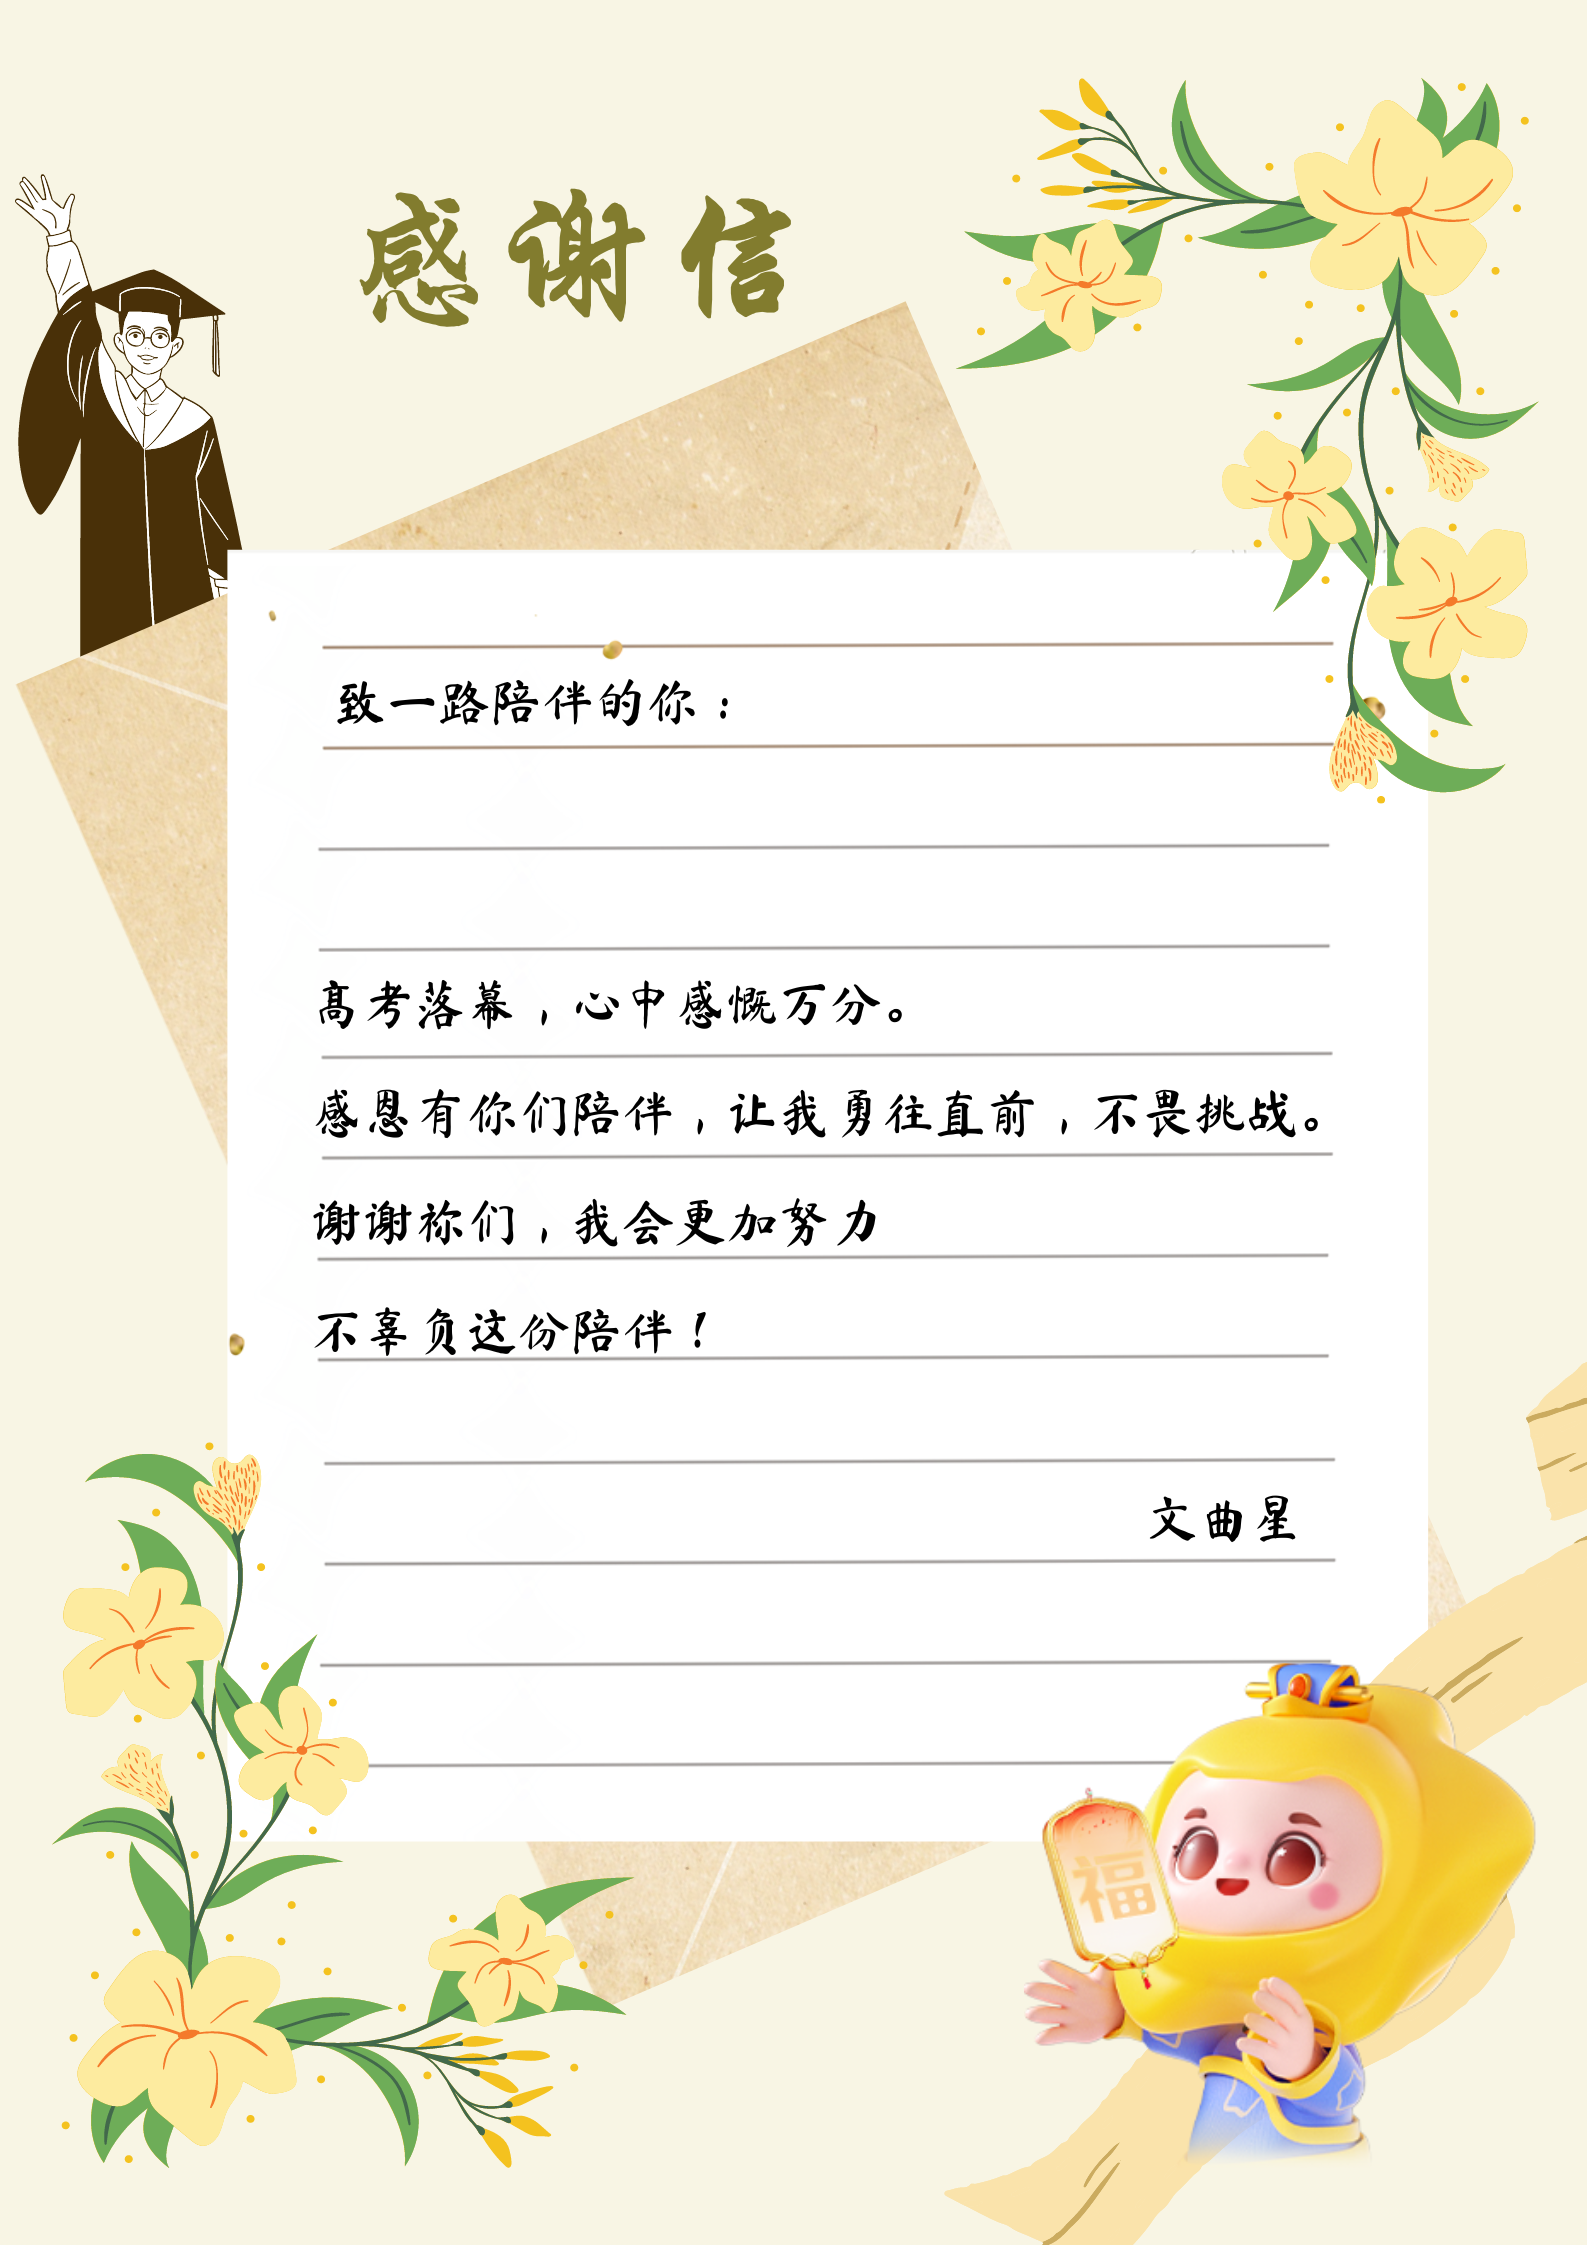 感谢信
致一路陪伴的你：
高考落幕，心中感慨万分。
感恩有你们陪伴，让我勇往直前，不畏挑战。
谢谢祢们，我会更加努力
不辜负这份陪伴！
文曲星
福